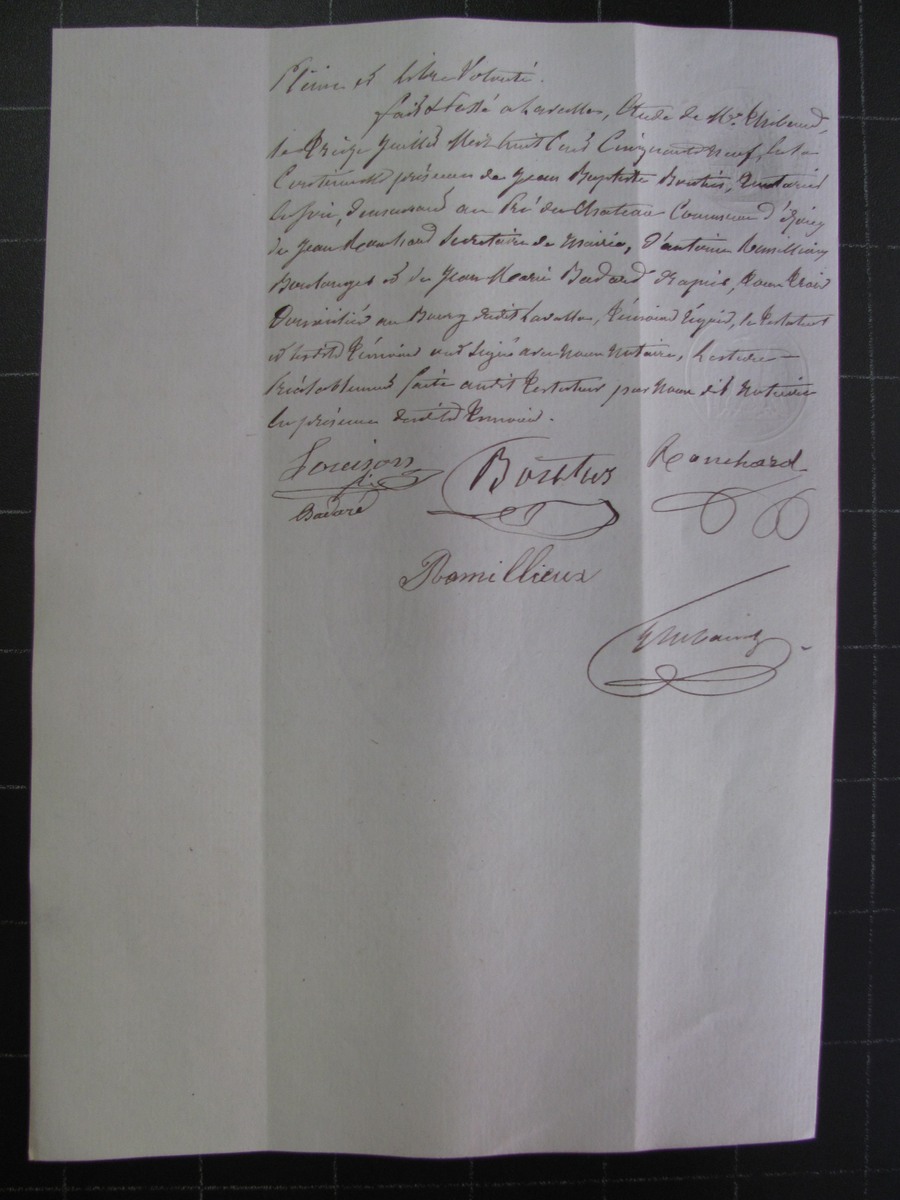 Pleine et libre Volonté.
fait & Passé a Lavalla, Etude de Me Thibaud,
le Treize Juillet Mil huit Cent Cinquante neuf, le tout
en présence de Jean Baptiste Boutus,
demeurant au Pré du Chateau Commune d'Izieux
de Jean Ranchard Secretaire de Mairie, d'antoine Ramillieux
Boulanger et de Jean Marie Badard, tous trois
Domiciliés au Bourg dudit Lavalla, Témoins requis, le testateur
et lesdits Témoins ont Signé avec Nous Notaire, Lecture
Préalablement faite audit Testateur par Nous dit Notaire
En présence desdits Témoins.
Louison
Badard
Boutus
Ranchard
Ramillieux